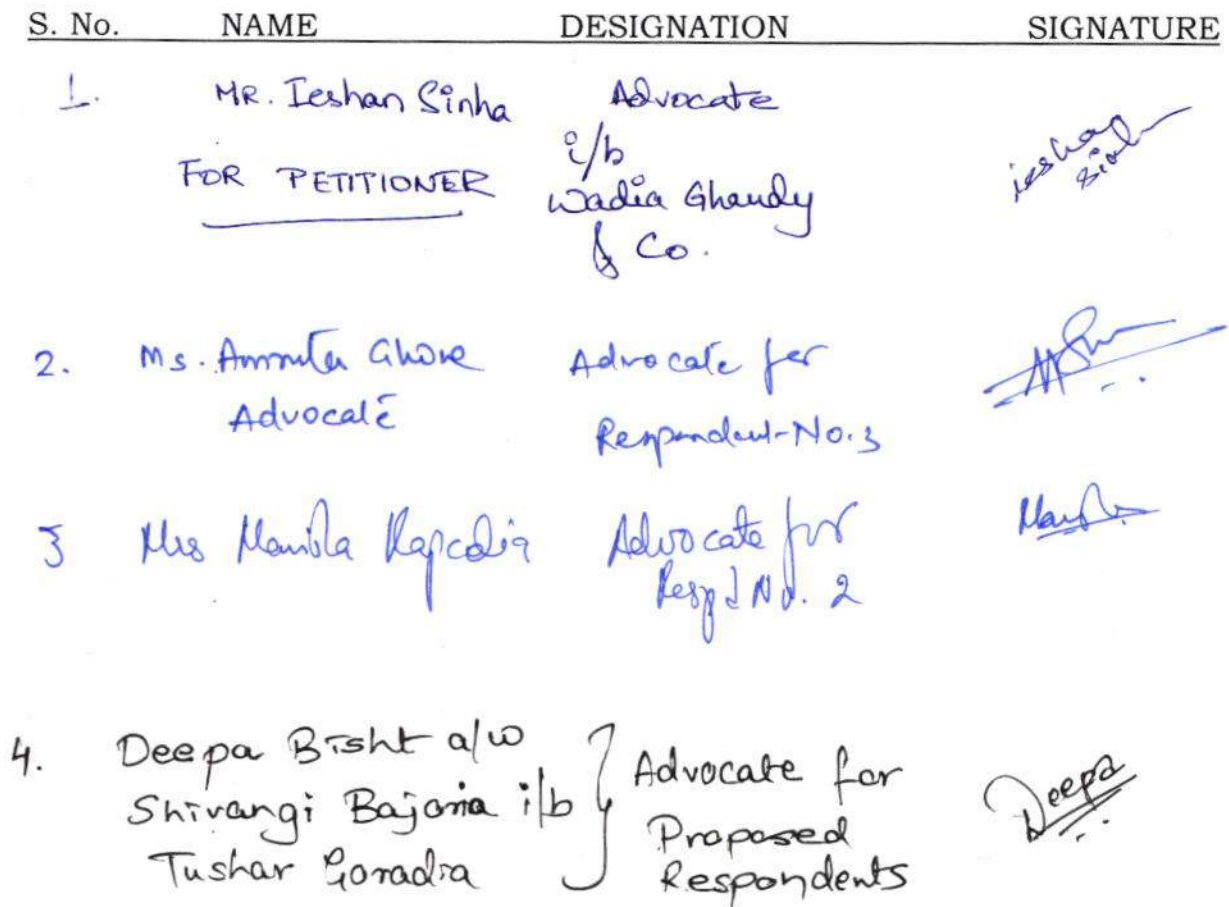 S. No. NAME DESIGNATION SIGNATURE
1. MR. Ieshan Sinha Advocate
i/b
FOR PETITIONER Wadia Ghandy
& Co.
ieshan
sinh
2. Ms. Amruta Ghone Advocate for
Advocate Respondent-No.3
3 Mrs Advocate for
Resp d No. 2
4. Deepa Bisht a/w
Shivangi Bajoria i/b
Tushar Goradia
Advocate for
Proposed
Respondents
Deepa